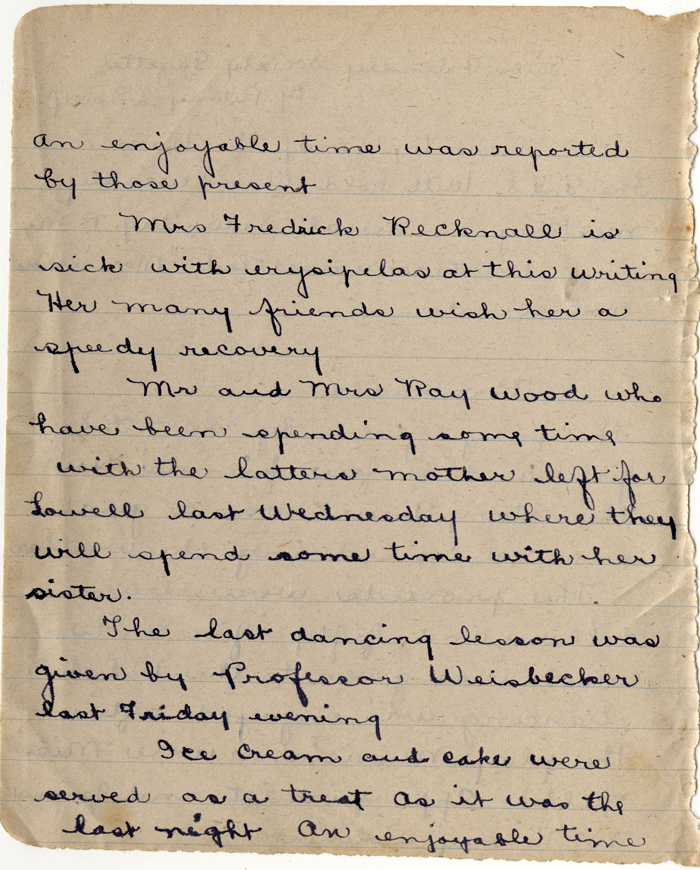 An enjoyable time was reported
by those present
Mrs Fredrick Recknall is
sick with erysipelas at this writing
Her many friends wish her a
speedy recovery
Mr and Mrs Ray Wood who
have been spending some time
with the latters mother left for
Lowell last Wednesday where they
will spend some time with her
sister.
The last dancing lesson was
given by Professor Weisbecker
last Friday evening
Ice cream and cake were
served as a treat as it was the
last night An enjoyable time